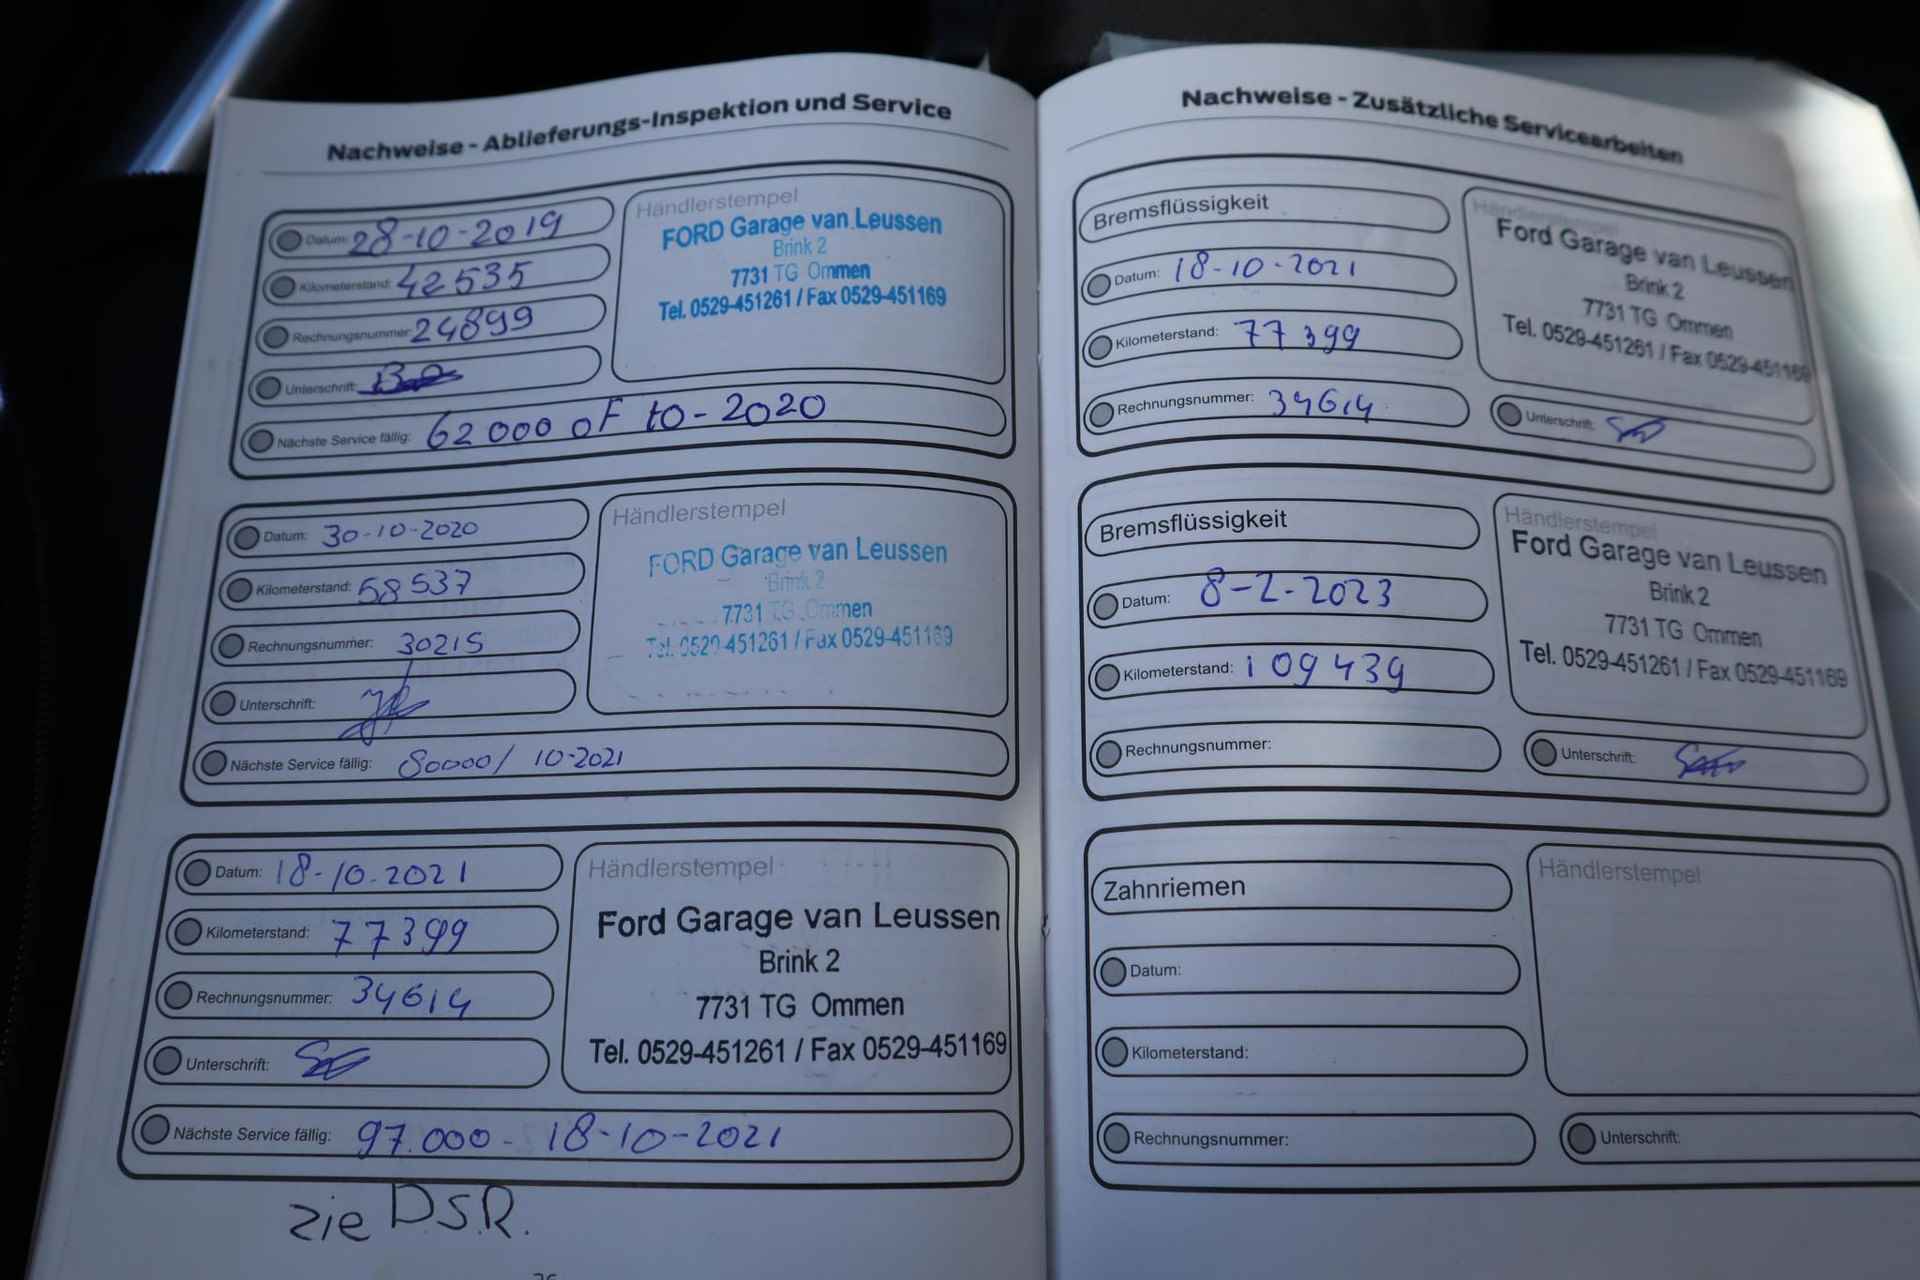 Nachweise - Ablieferungs-Inspektion und Service
Datum: 28-10-2019
Kilometerstand: 42535
Rechnungsnummer: 24899
Unterschrift:
Nächste Service fällig: 62000 OF 10-2020
Händlerstempel
FORD Garage van Leussen
Brink 2
7731 TG Ommen
Tel. 0529-451261 / Fax 0529-451169
Datum: 30-10-2020
Kilometerstand: 58537
Rechnungsnummer: 30215
Unterschrift:
Nächste Service fällig: 80000/ 10-2021
Händlerstempel
FORD Garage van Leussen
Brink 2
7731 TG Ommen
Tel. 0529-451261 / Fax 0529-451169
Datum: 18-10-2021
Kilometerstand: 77399
Rechnungsnummer: 34614
Unterschrift:
Nächste Service fällig: 97.000 - 18-10-2021
Händlerstempel
Ford Garage van Leussen
Brink 2
7731 TG Ommen
Tel. 0529-451261 / Fax 0529-451169
zie D.S.R.
Nachweise - Zusätzliche Servicearbeiten
Bremsflüssigkeit
Datum: 18-10-2021
Kilometerstand: 77399
Rechnungsnummer: 34614
Händlerstempel
Ford Garage van Leussen
Brink 2
7731 TG Ommen
Tel. 0529-451261 / Fax 0529-451169
Unterschrift:
Bremsflüssigkeit
Datum: 8-2-2023
Kilometerstand: 109439
Rechnungsnummer:
Händlerstempel
Ford Garage van Leussen
Brink 2
7731 TG Ommen
Tel. 0529-451261 / Fax 0529-451169
Unterschrift:
Zahnriemen
Datum:
Kilometerstand:
Rechnungsnummer:
Händlerstempel
Unterschrift: